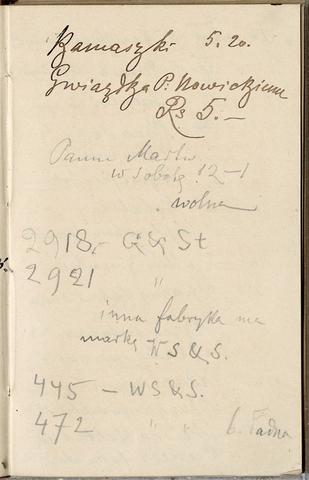 Kamaszki 5.20.
Gwiazdka P. Nowickiemu
Rs 5.—
Panna
w sobotę 12–1
wolna
2918,– G & St
2921 "
inna fabryka ma
markę WS&S.
445 – WS&S.
472 " "
b. ładna